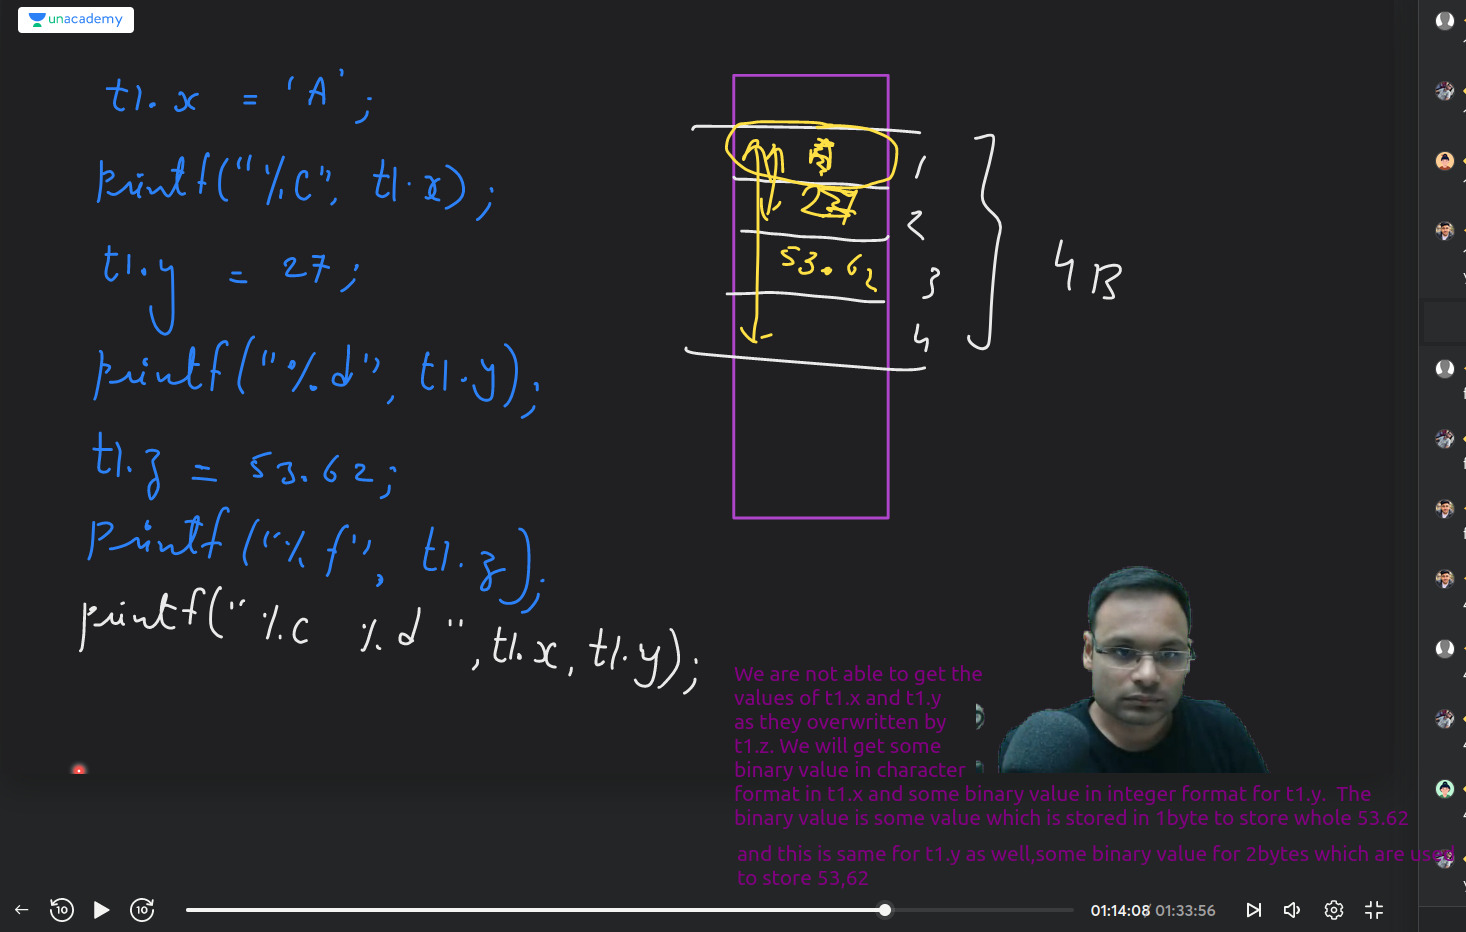 unacademy
t1.x = 'A';
printf("%c", t1.x);
t1.y = 27;
printf("%d", t1.y);
t1.z = 53.62;
printf("%f", t1.z);
printf("%c %d", t1.x, t1.y);
1
27
2
53.62
3
4
4B
We are not able to get the
values of t1.x and t1.y
as they overwritten by
t1.z. We will get some
binary value in character
format in t1.x and some binary value in integer format for t1.y. The
binary value is some value which is stored in 1byte to store whole 53.62
and this is same for t1.y as well,some binary value for 2bytes which are used
to store 53,62
10
10
01:14:08 / 01:33:56